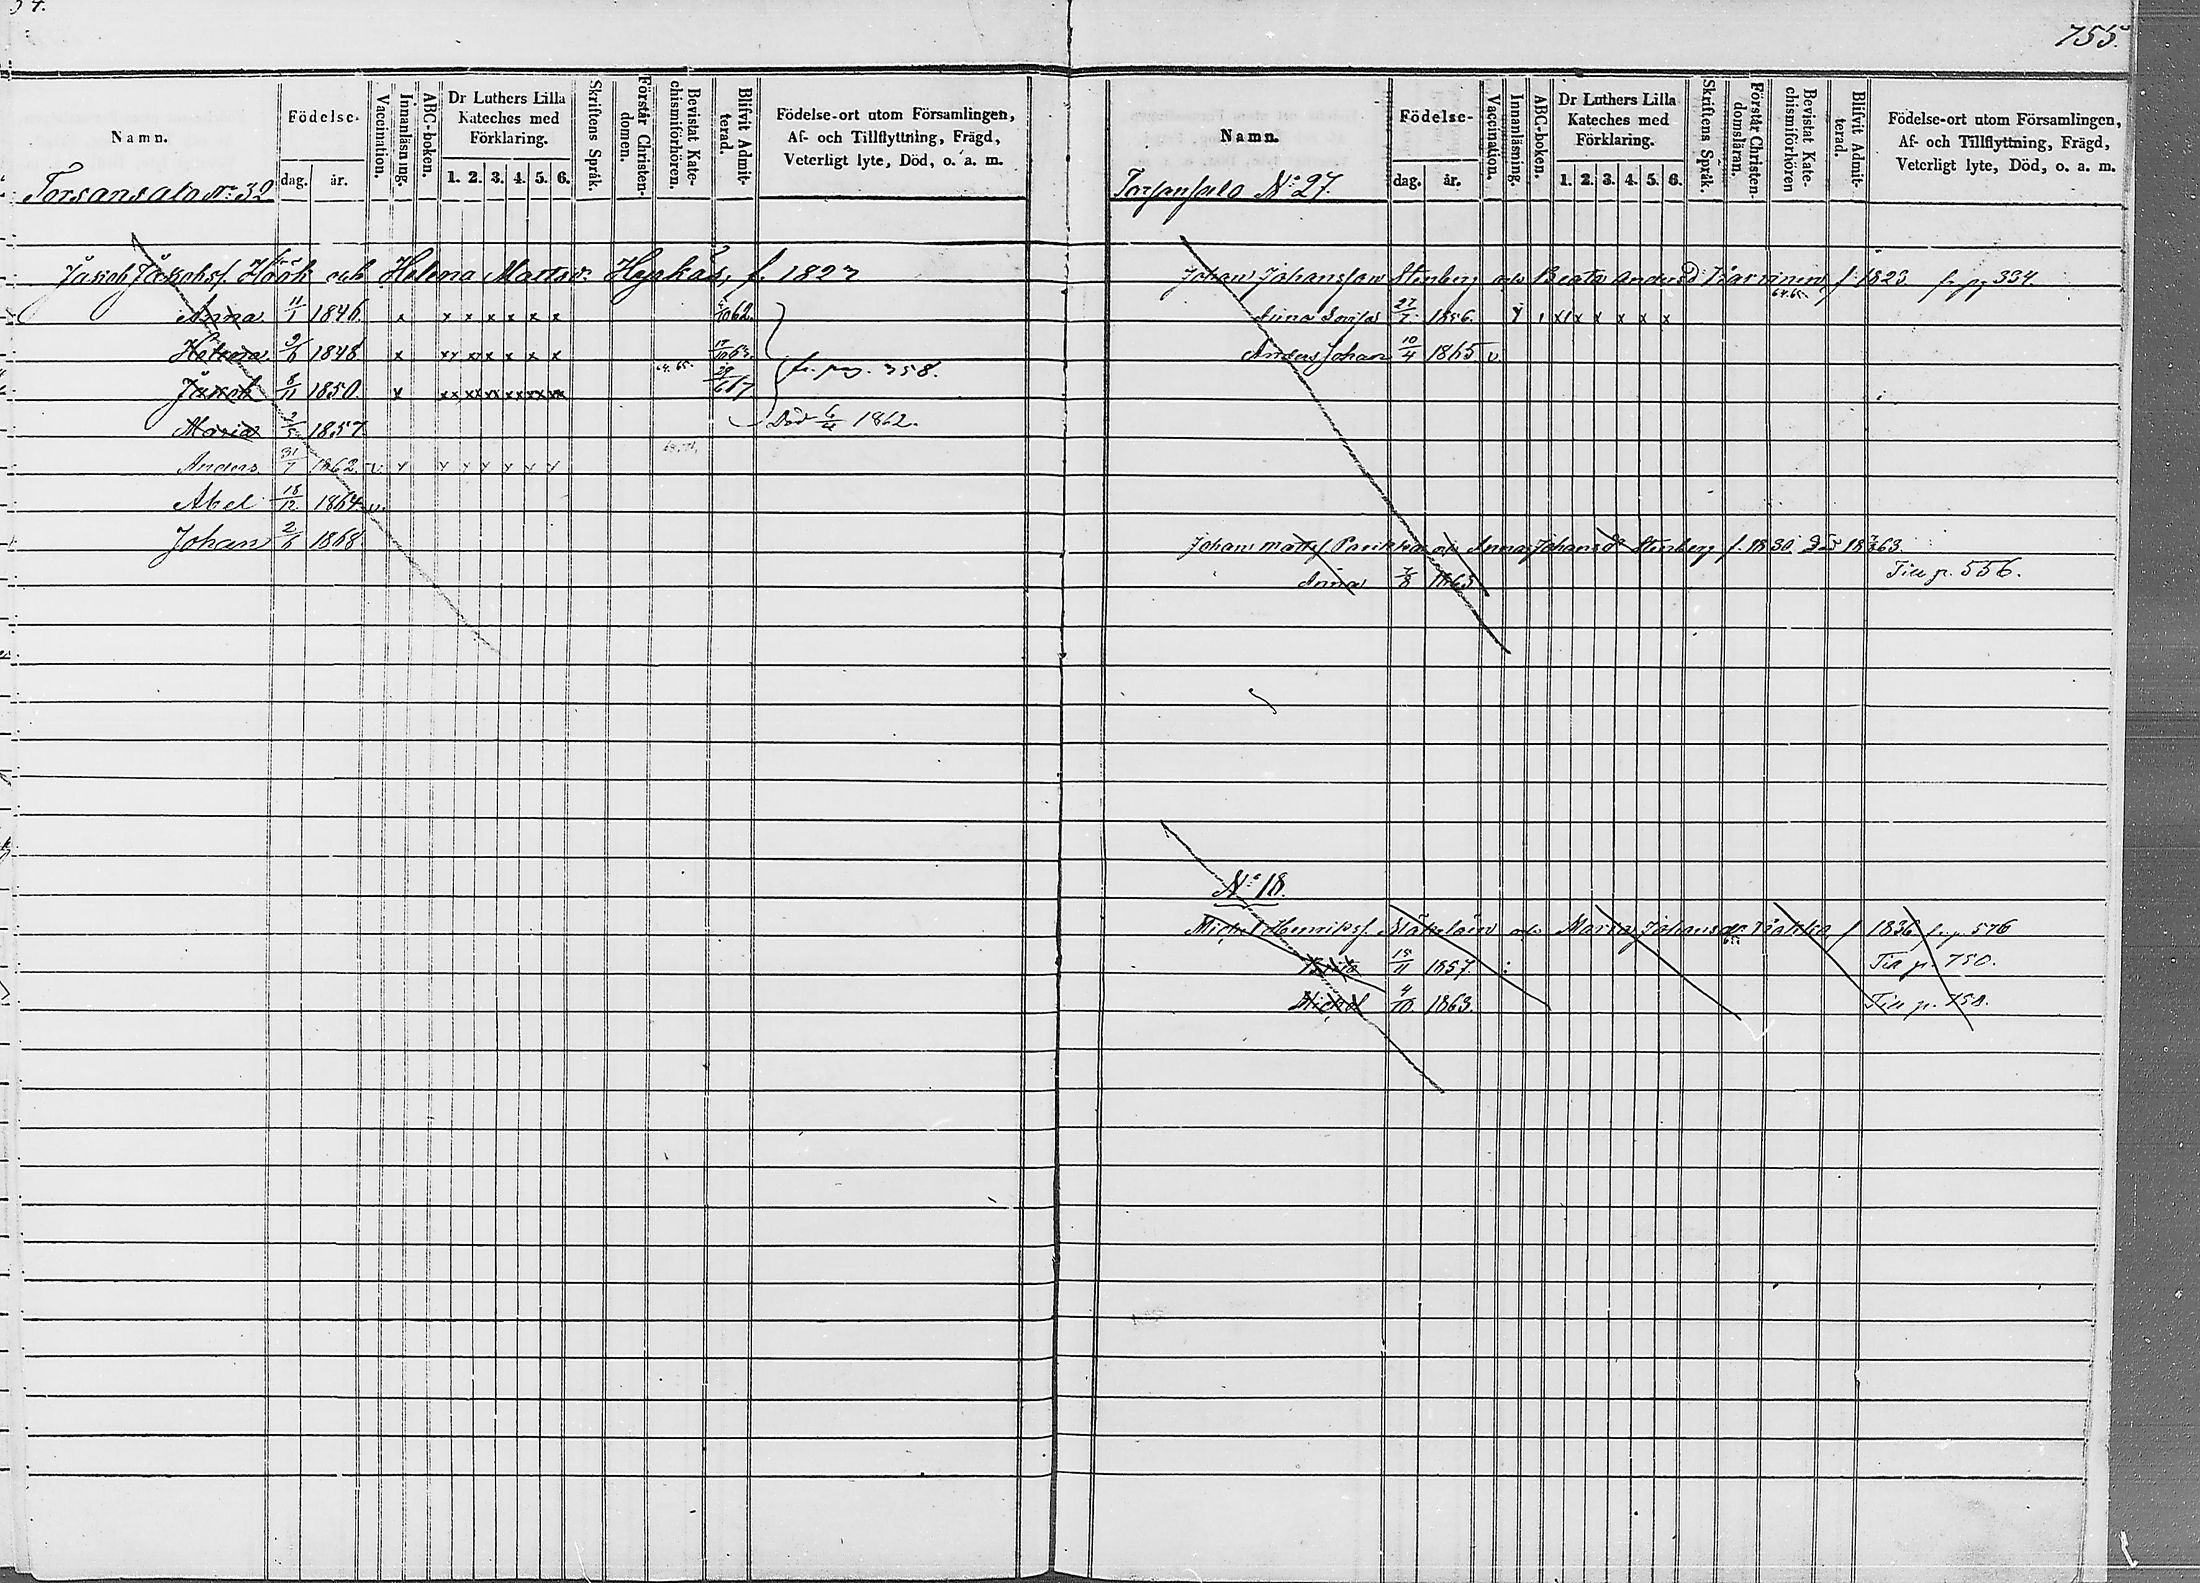 54.
Namn.
Födelse-
dag. år.
Vaccination.
Innanläsning.
ABC-boken.
Dr Luthers Lilla
Kateches med
Förklaring.
1. 2. 3. 4. 5. 6.
Skriftens Språk.
Förstår Christen-
domen.
Bevistat Kate-
chismiförhören.
Blifvit Admit-
terad.
Födelse-ort utom Församlingen,
Af- och Tillflyttning, Frägd,
Veterligt lyte, Död, o. a. m.
Torsansalo No: 32
Jakob Jakobsf. Höök och Helena Mattsdr. f. 1823
Anna 11/1 1846. x x x x x x x 62.
Helena 9/6 1848 x xx xx x x x x 17/10 63.
Jakob 8/11 1850. x xx xx xx xx xx xx 64. 65. 29/6 67 fr. pag. 358.
Maria 2/5 1857 Död 6/4 1862.
Anders 31/7 1862. v y y y y y y y
Abel 18/12 1864 v.
Johan 2/6 1868.
755.
Namn.
Födelse-
dag. år.
Vaccination.
Innanläsning.
ABC-boken.
Dr Luthers Lilla
Kateches med
Förklaring.
1. 2. 3. 4. 5. 6.
Skriftens Språk.
Förstår Christen-
domsläran.
Bevistat Kate-
chismiförhören
Blifvit Admit-
terad.
Födelse-ort utom Församlingen,
Af- och Tillflyttning, Frägd,
Veterligt lyte, Död, o. a. m.
Torsansalo No: 27.
Johan Johansson Stenberg och Beata Andersd f 1823 fr. pg 334.
64. 65.
Anna Lovisa 27/7 1856.
Anders Johan 10/4 1865 v
Johan Mattsf Parikka och Anna Johansd Stenberg f. 1830 Död 1863.
Anna 7/8 1863 Till p. 556.
No: 18.
Michel Henriksf. Mäkeläin och Maria Johansdr f 1836 fr. p. 576
Brita 15/11 1857. Till p. 750.
Michel 4/10 1863. Till p. 758.